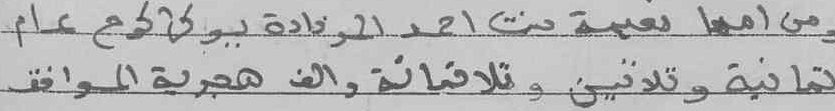 ومن امها نعيمة بنت احمد المزدادة ببوكركوح عام
ثمانية وثلاثين وثلاثمائة والف هجرية الموافق